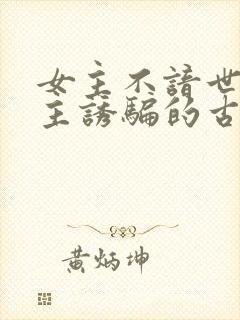 女主不諳世
主誘騙的古
黃炳坤